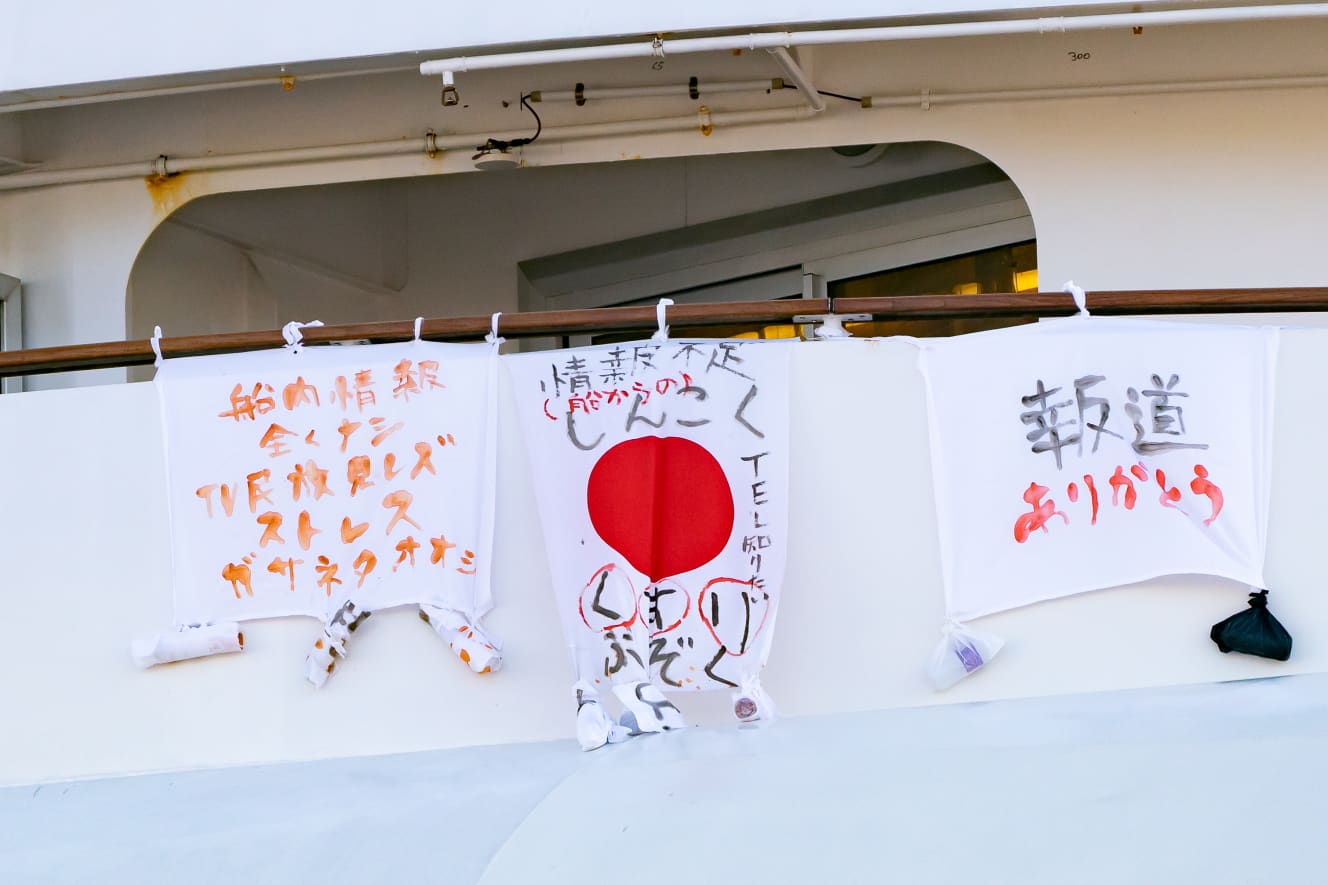 船内情報
全くナシ
TV民放見レズ
ストレス
ガサネタオオシ
情報不足
(船からの)
しんこく
TEL知りたい
くすり
ぶそく
報道
ありがとう
300